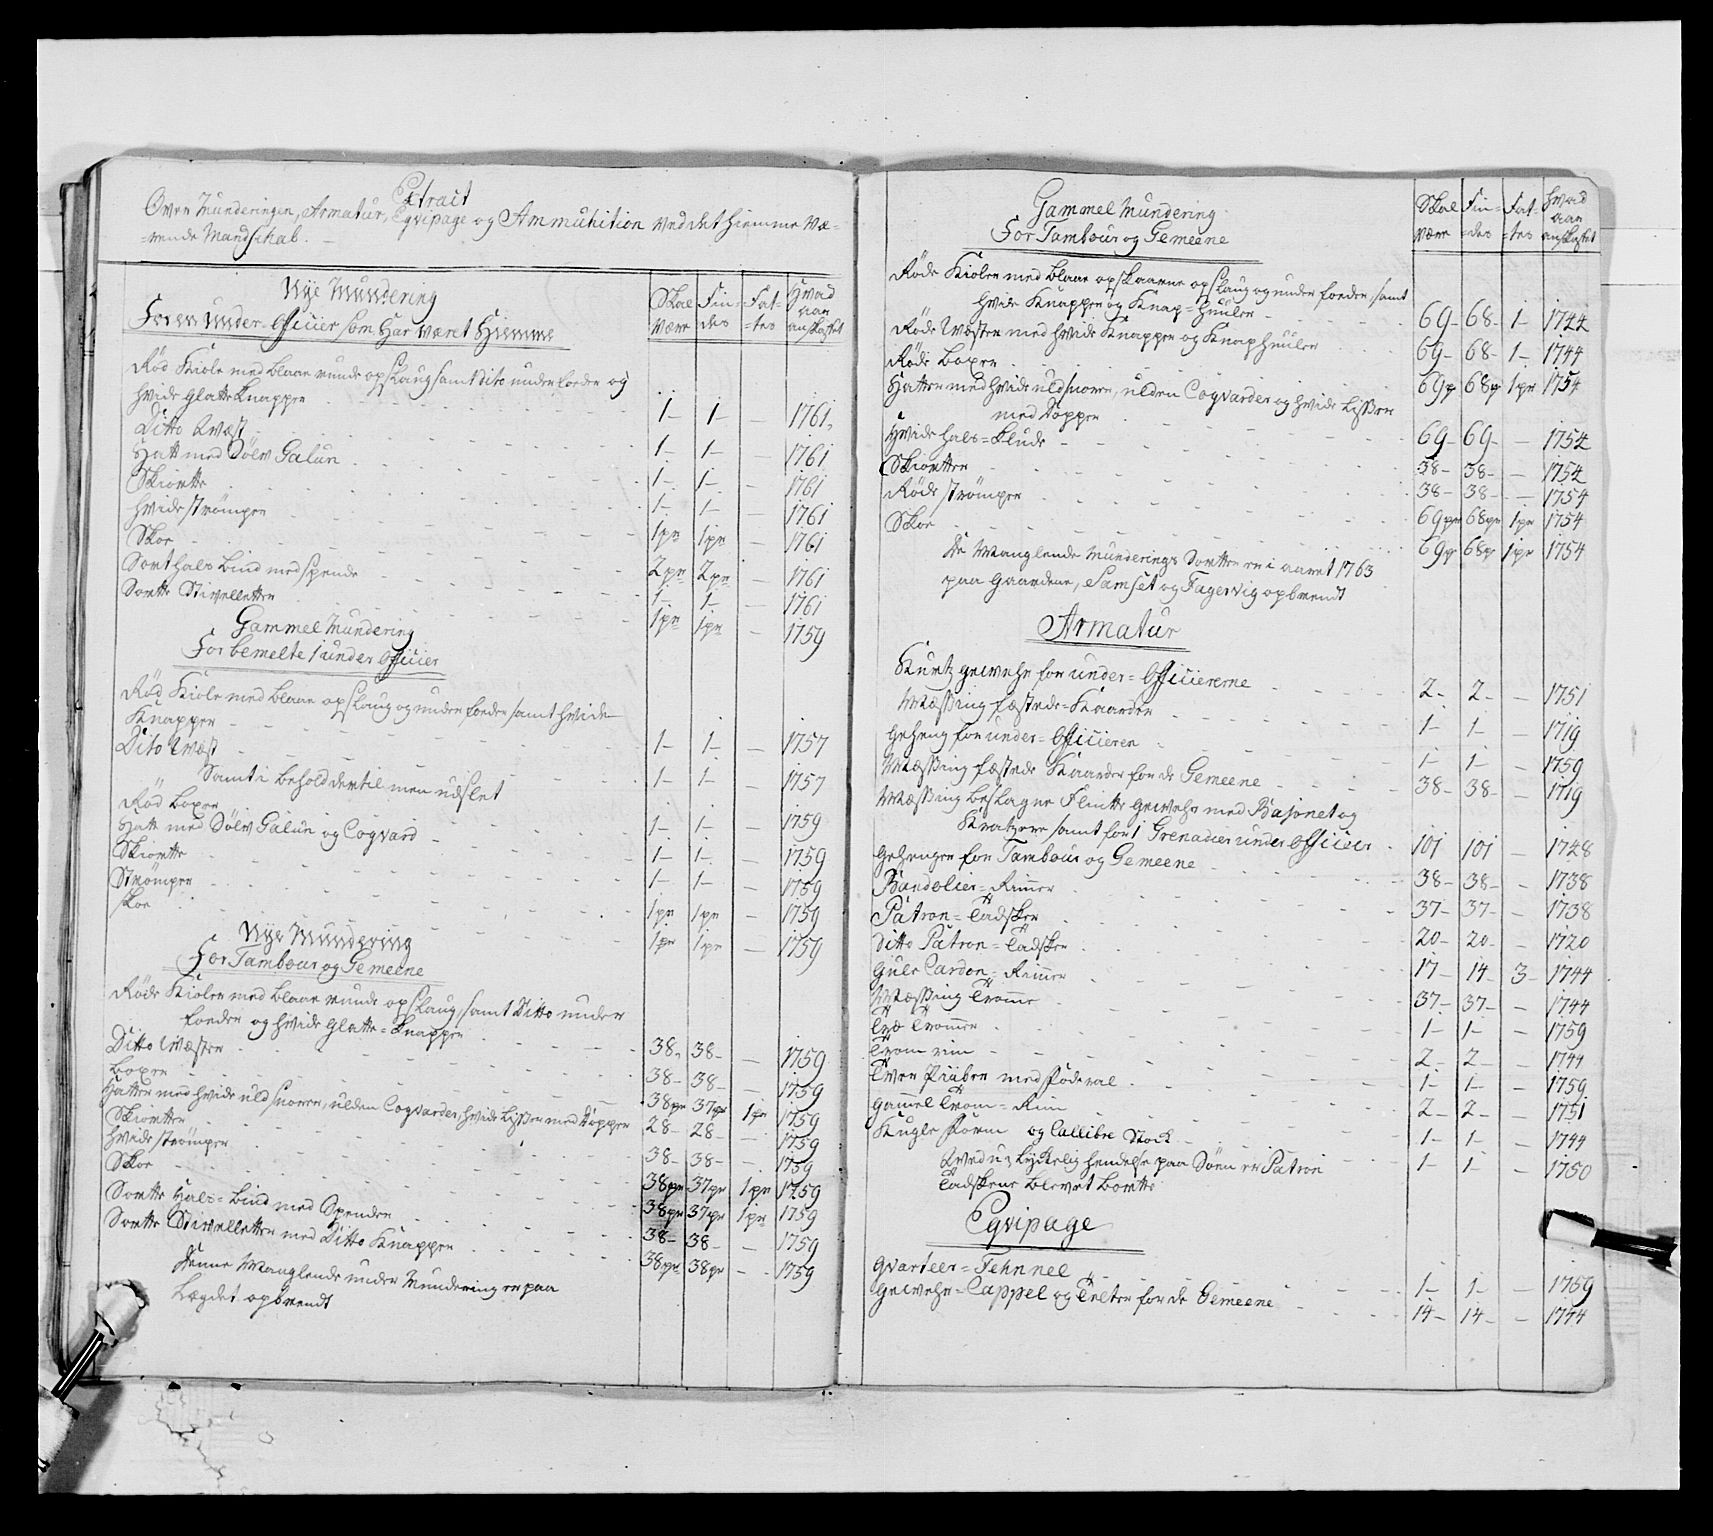 Extrait
Over Munderingen, Armatur, Eqvipage og Ammunition ved det hiemme væ-
=rende Mandskab.
Nye Mundering
For en Under-Officier som Har været Hiemme
Skal være
Fin=des
Fat=tes
Hvad aar anskaffet
Rød Kiole med blaae runde opslaug samt dito underfoeder og
hvide glatte Knapper 1- 1- — 1761.
Ditto Væst 1- 1- — 1761
Hatt med Sølv Galun 1- 1- — 1761
Skiorte 1- 1- — 1761
hvide strømper 1pr 1pr — 1761
Skoe 2pr 2pr — 1761
Sort hals bind med spende 1- 1- — 1761
Sorte Stivelletter 1pr 1pr — 1759
Gammel Mundering
For bemelte 1 under Officier
Rød Kiole med blaae opslaug og underfoeder samt hvide
Knapper 1- 1- — 1757
Dito Væst 1- 1- — 1757
Samt i behold dertil men udslet
Rød boxer 1- 1- 1759
Hatt med Sølv Galun og Coqvard 1- 1- — 1759
Skiorte 1- 1- — 1759
Strømper 1pr 1pr — 1759
Skoe 1pr 1pr — 1759
Nye Mundering
For Tambour og Gemeene
Røde Kioler med blaae runde opslaug, samt Ditto under
foeder og hvide glatte=Knapper 38. 38- — 1759
Ditto Væster 38- 38- — 1759
boxer 38pr 37pr 1pr 1759
Hatter med hvide uld snorer, ulden Coqvarder, hvide lidser med Dopper 28- 28- — 1759
Skiorter 38- 38- — 1759
hvide strømper 38pr 37pr 1pr 1759
Skoe 38pr 37pr 1pr 1759
Sorte Hals=bind med Spender 38- 38- — 1759
Sorte Stivelletter med Ditto Knapper 38pr 38pr — 1759
Denne Manglende under Mundering er paa
Lægdet opbrendt
Gammel Mundering
For Tambour og Gemeene
Skal være
Fin=des
Fat=tes
hvad aar anskaffet
Røde Kioler med blaae opskaarne opslaug og under foeder, samt
hvide Knapper og Knap=huuler 69- 68- 1- 1744
Røde Væster med hvide Knapper og Knaphuuler 69- 68- 1- 1744
Røde boxer 69pr 68pr 1pr 1754
Hatter med hvide uld snorer, ulden Coqvarder og hvide lidser
med Dopper 69- 69- — 1754
Hvide hals=Klude 38- 38- — 1754
Skiorter 38- 38- — 1754
Røde strømper 69pr 68pr 1pr 1754
Skoe 69pr 68pr 1pr 1754
De Manglende Munderings Sorter er i aaret 1763
paa gaardene, Samset og Fagervig opbrendt
Armatur
Kurtz gewehr for under=Officiererne 2- 2- — 1751
Messing fæstede=Kaarder 1- 1- — 1719
geheng for under=Officieren 1- 1- — 1759
Messing fæstede Kaarder for de Gemeene 38- 38- — 1719
Messing beslagne Flintte gewehr med Bajonet og
Kratzere samt for 1 Grenadeer under Officier 101 101 — 1748
gehenger for Tambour og Gemeene 38- 38- — 1738
Bandolier=Remer 37- 37- — 1738
Patron=Tadsker 20- 20- — 1720
Ditto Patron=Tadsker 17- 14 3- 1744
Gule Cardon=Remer 37- 37- — 1744
Messing Tromme 1- 1- — 1759
Træ Trommer 2- 2- — 1744
Trom rim 1- 1- — 1759
Tver Piiber med Foderal 2- 2- — 1751
gammel Trom=Rim 1- 1- — 1744
Kugle Form og Callibre Stock 1- 1- — 1750
Ved u-lyckelig hendelse paa Søen er Patron
Tadskerne blevet borte
Eqvipage
Qvarteer=Fehnnel 1- 1- — 1759
gewehr=Cappel og Telter for de Gemeene 14- 14- — 1744